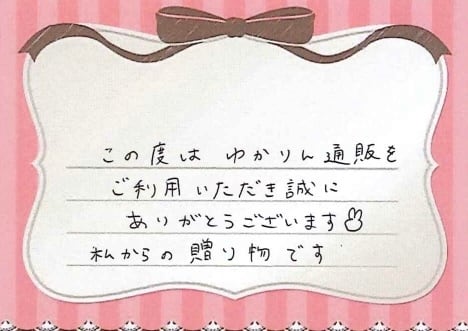 この度は ゆかりん通販を
ご利用いただき誠に
ありがとうございます
私からの贈り物です